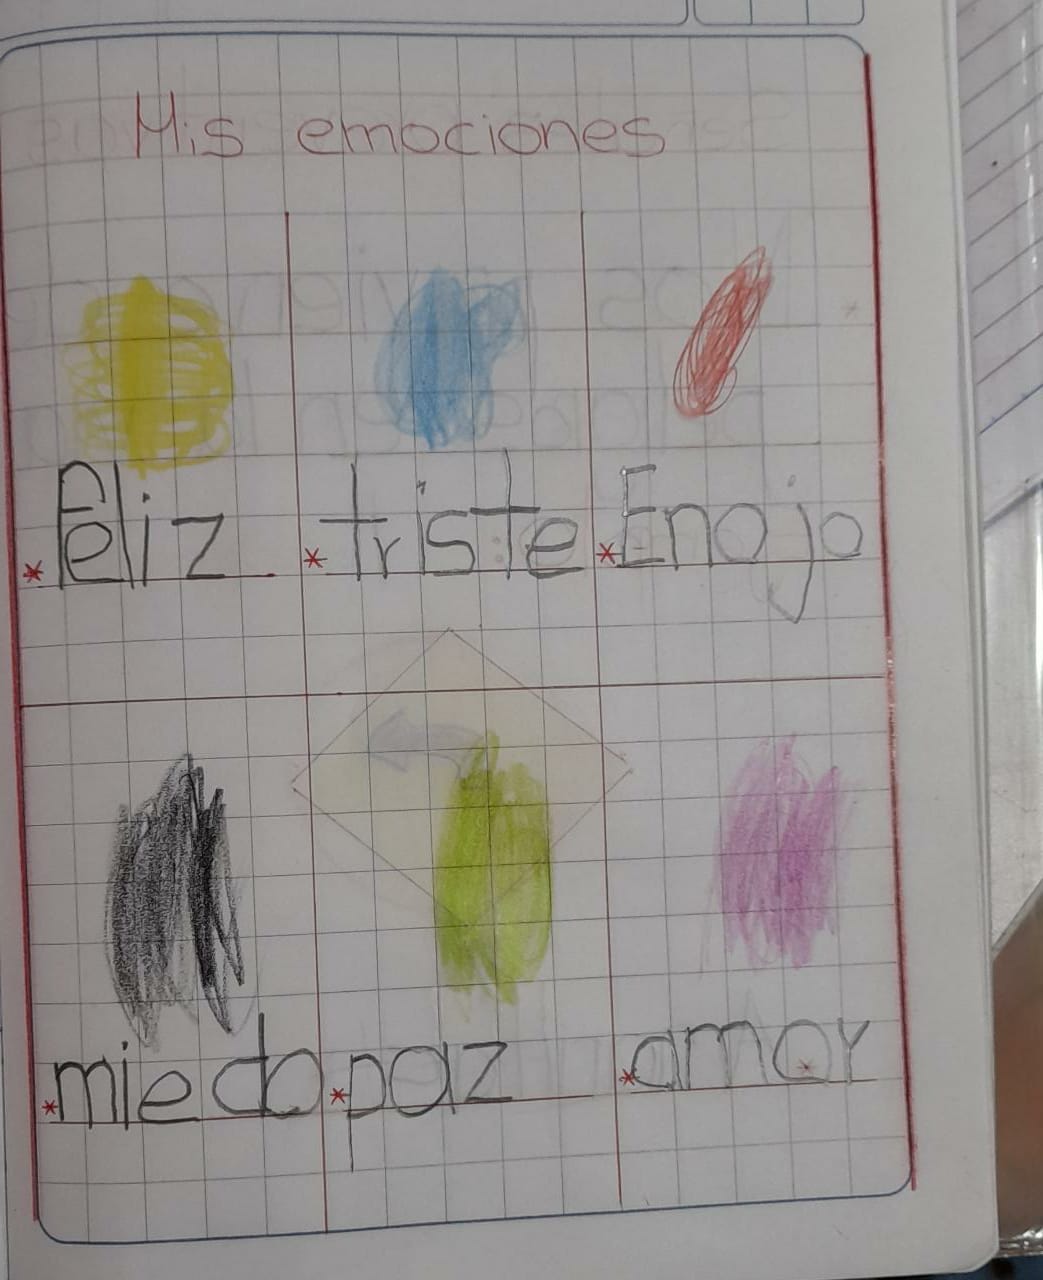 Mis emociones
* Feliz * triste * Enojo
* miedo * paz * amor